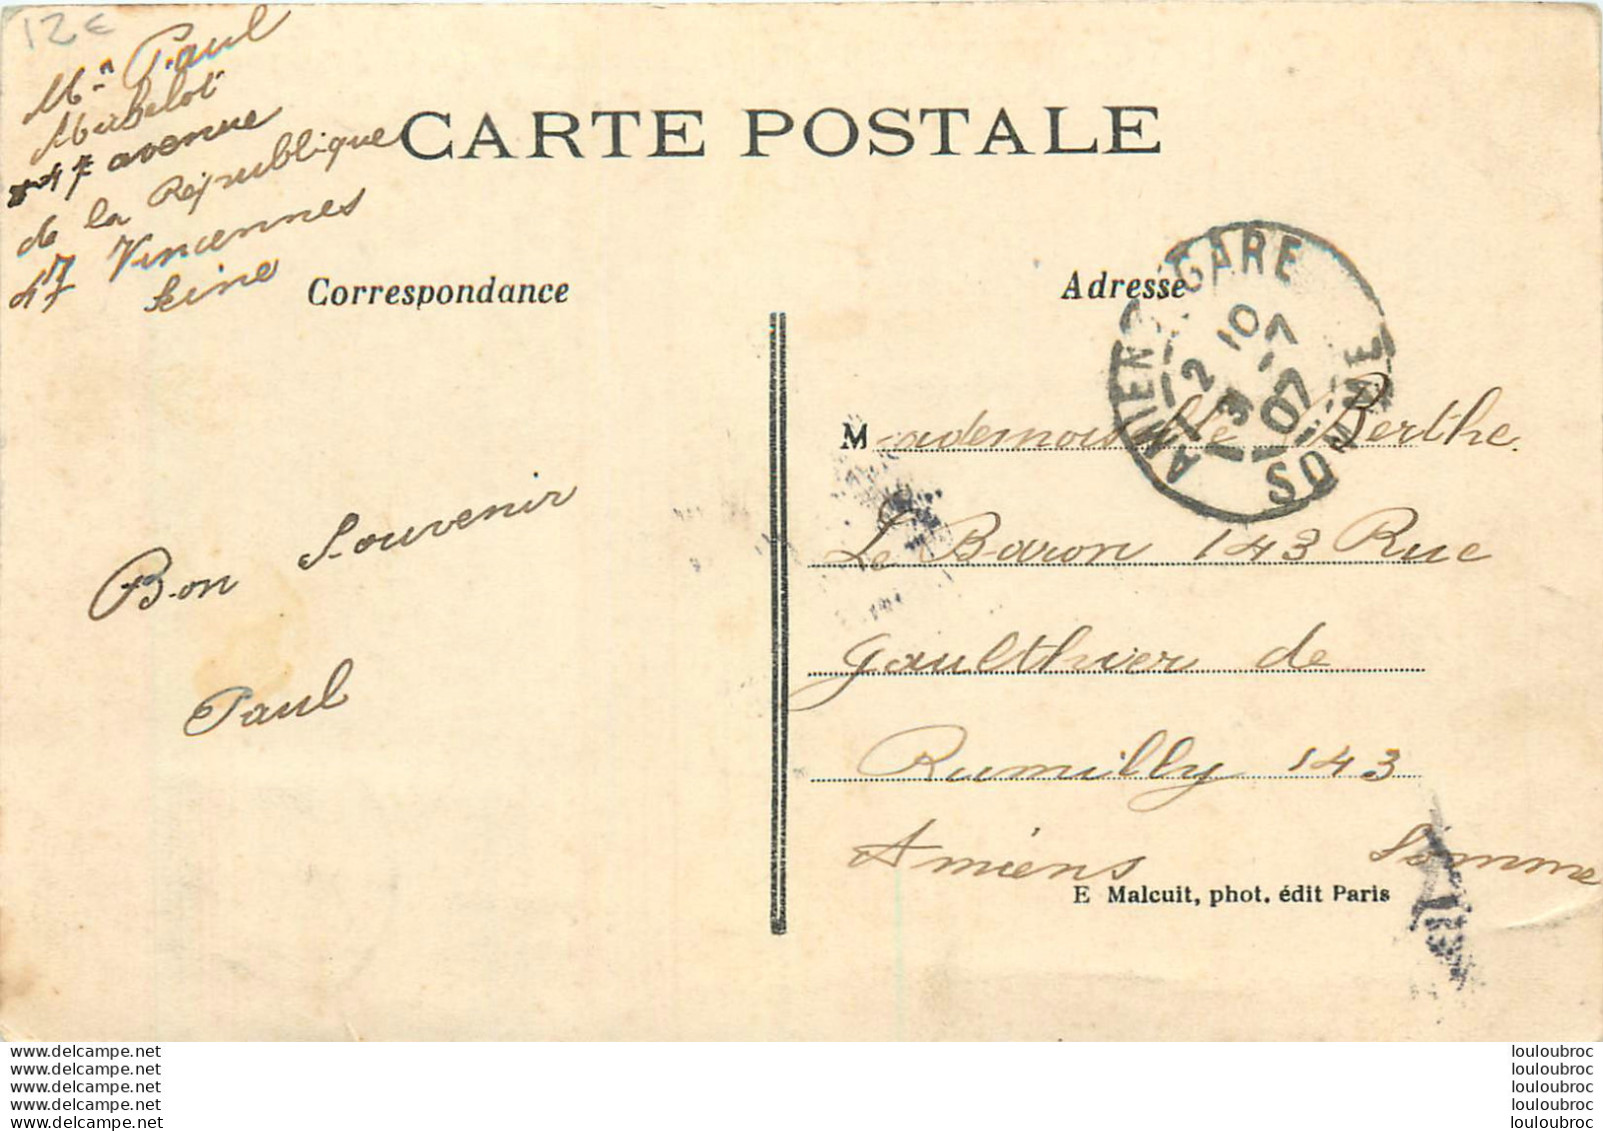 12€
Mr Paul
Mirbelot
47 avenue
de la République
47 Vincennes
Seine
CARTE POSTALE
Correspondance
Adresse
AMIENS GARE
12 10
3 -7
07
SOMME
Mademoiselle Berthe
Le Baron 143 Rue
Gaulthier de
Rumilly 143
Amiens Somme
Bon Souvenir
Paul
E Malcuit, phot. édit Paris
www.delcampe.net
www.delcampe.net
www.delcampe.net
www.delcampe.net
www.delcampe.net
louloubroc
louloubroc
louloubroc
louloubroc
louloubroc